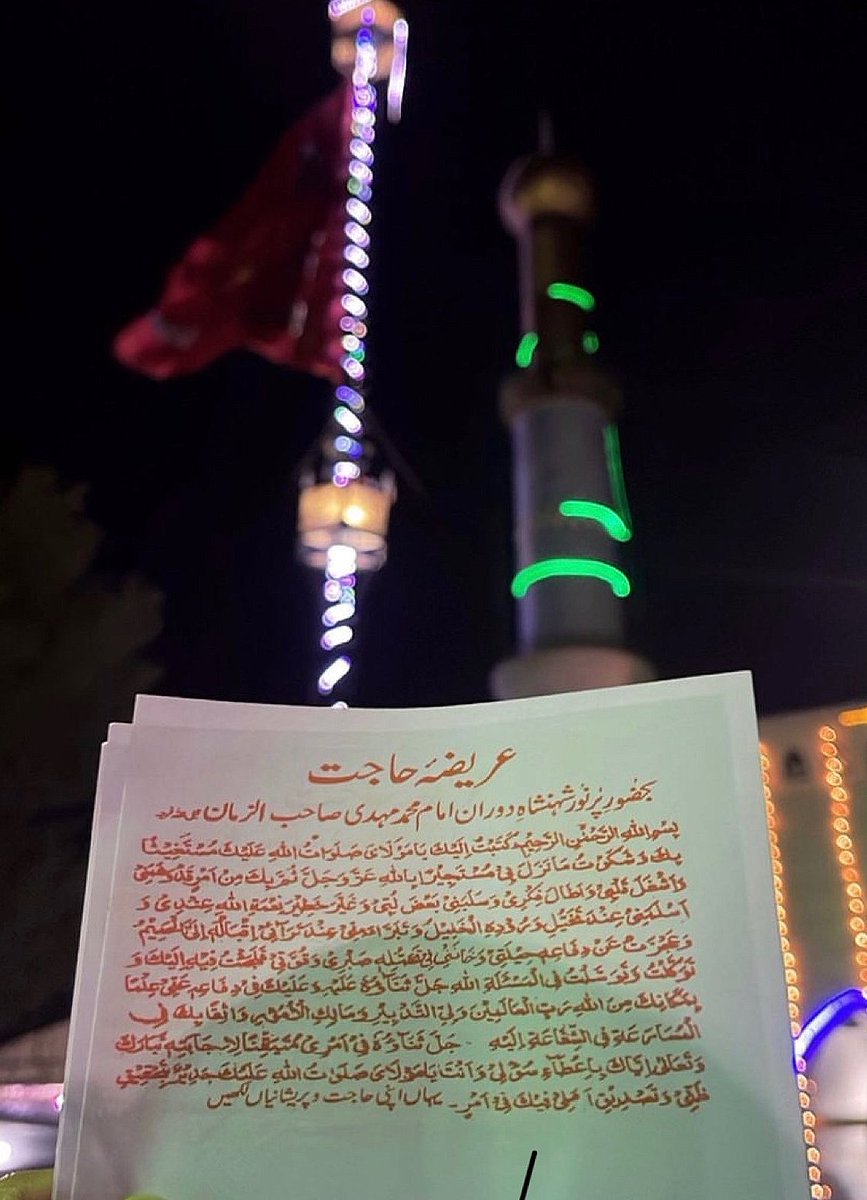 عریضۂ حاجت
بحضور پرنور شہنشاہ دوران امام محمد مہدی صاحب الزمان
بِسْمِ اللهِ الرَّحْمٰنِ الرَّحِيْمِ كَتَبْتُ اِلَيْكَ يَا مَوْلَاىَ صَلَوَاتُ اللهِ عَلَيْكَ مُسْتَغِيْثًا
بِكَ وَشَكَوْتُ مَا نَزَلَ بِىْ مُسْتَجِيْرًا بِاللهِ عَزَّ وَجَلَّ ثُمَّ بِكَ مِنْ اَمْرٍ قَدْ دَهَمَنِىْ
وَاَشْغَلَ قَلْبِىْ وَاَطَالَ فِكْرِىْ وَسَلَبَنِىْ بَعْضَ لُبِّىْ وَغَيَّرَ خَطِيْرَ نِعْمَةِ اللهِ عِنْدِىْ وَ
اَسْلَمَنِىْ عِنْدَ تَخَيُّلِ وُرُوْدِهِ الْخَلِيْلُ وَتَبَرَّأَ مِنِّىْ عِنْدَ تَرَائِىْ اِقْبَالِهٖ اِلَىَّ الْحَمِيْمُ
وَعَجَزَتْ عَنْ دِفَاعِهٖ حِيْلَتِىْ وَخَانَنِىْ فِىْ تَحَمُّلِهٖ صَبْرِىْ وَقُوَّتِىْ فَلَجَئْتُ فِيْهِ اِلَيْكَ وَ
تَوَكَّلْتُ فِى الْمَسْئَلَةِ اللهِ جَلَّ ثَنَاؤُهٗ عَلَيْهِ وَعَلَيْكَ فِىْ دِفَاعِهٖ عَنِّىْ عِلْمًا
بِمَكَانِكَ مِنَ اللهِ رَبِّ الْعَالَمِيْنَ وَلِىِّ التَّدْبِيْرِ وَمَالِكِ الْاُمُوْرِ وَاثِقًا بِكَ فِى
الْمُسَارَعَةِ فِى الشَّفَاعَةِ اِلَيْهِ جَلَّ ثَنَاؤُهٗ فِىْ اَمْرِىْ مُتَيَقِّنًا لِاِجَابَتِهٖ تَبَارَكَ
وَتَعَالٰى اِيَّاكَ بِاِعْطَآءِ سُؤْلِىْ وَاَنْتَ يَا مَوْلَاىَ صَلَوٰتُ اللهِ عَلَيْكَ جَدِيْرٌ بِتَحْقِيْقِ
ظَنِّىْ وَتَصْدِيْقِ اَمَلِىْ فِيْكَ فِىْ اَمْرِ۔ یہاں اپنی حاجت و پریشانیاں لکھیں